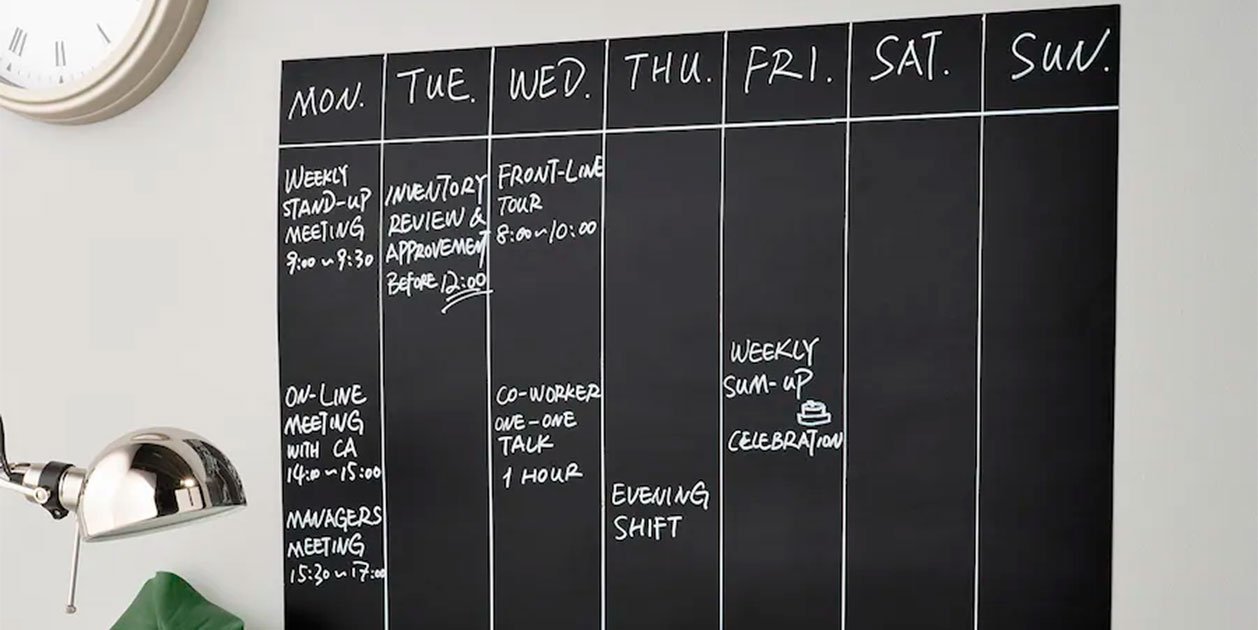 MON.
TUE.
WED.
THU.
FRI.
SAT.
SUN.
WEEKLY
STAND-UP
MEETING
9:00 ~ 9:30
ON-LINE
MEETING
WITH CA
14:00 ~ 15:00
MANAGERS
MEETING
15:30 ~ 17:00
INVENTORY
REVIEW &
APPROVEMENT
BEFORE 12:00
FRONT-LINE
TOUR
8:00 ~ 10:00
CO-WORKER
ONE-ONE
TALK
1 HOUR
EVENING
SHIFT
WEEKLY
SUM-UP
CELEBRATION